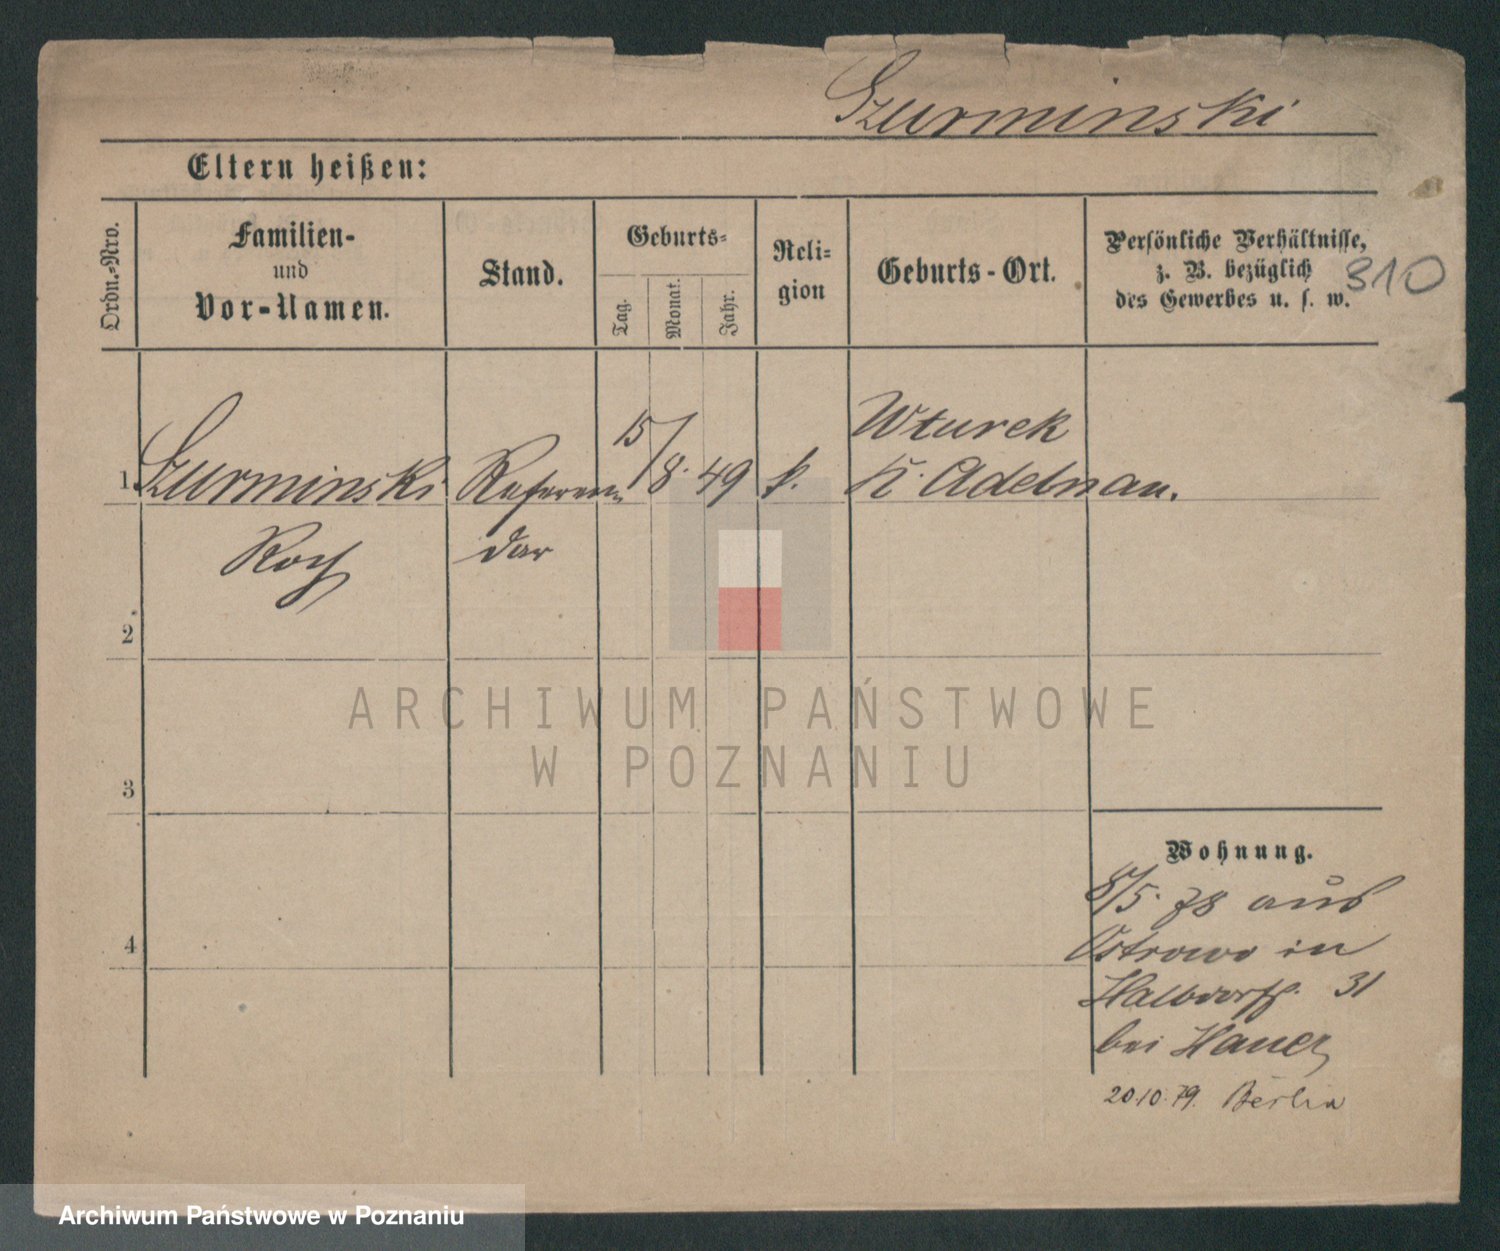 Szurminski
Eltern heißen:
Ordn.-Nro.
Familien-
und
Vor-Namen.
Stand.
Geburts-
Tag.
Monat.
Jahr.
Reli-
gion
Geburts-Ort.
Persönliche Verhältnisse,
z. B. bezüglich
des Gewerbes u. s. w.
310
1 Szurminski Referen 15/8. 49 k. Wturek
K. Adelnau.
Roch dar
2
3
4
Wohnung.
8/5. 78 aus
Ostrowo in
Halbdorfst. 31
bei Hauer
20.10.79. Berlin
ARCHIWUM PAŃSTWOWE
W POZNANIU
Archiwum Państwowe w Poznaniu